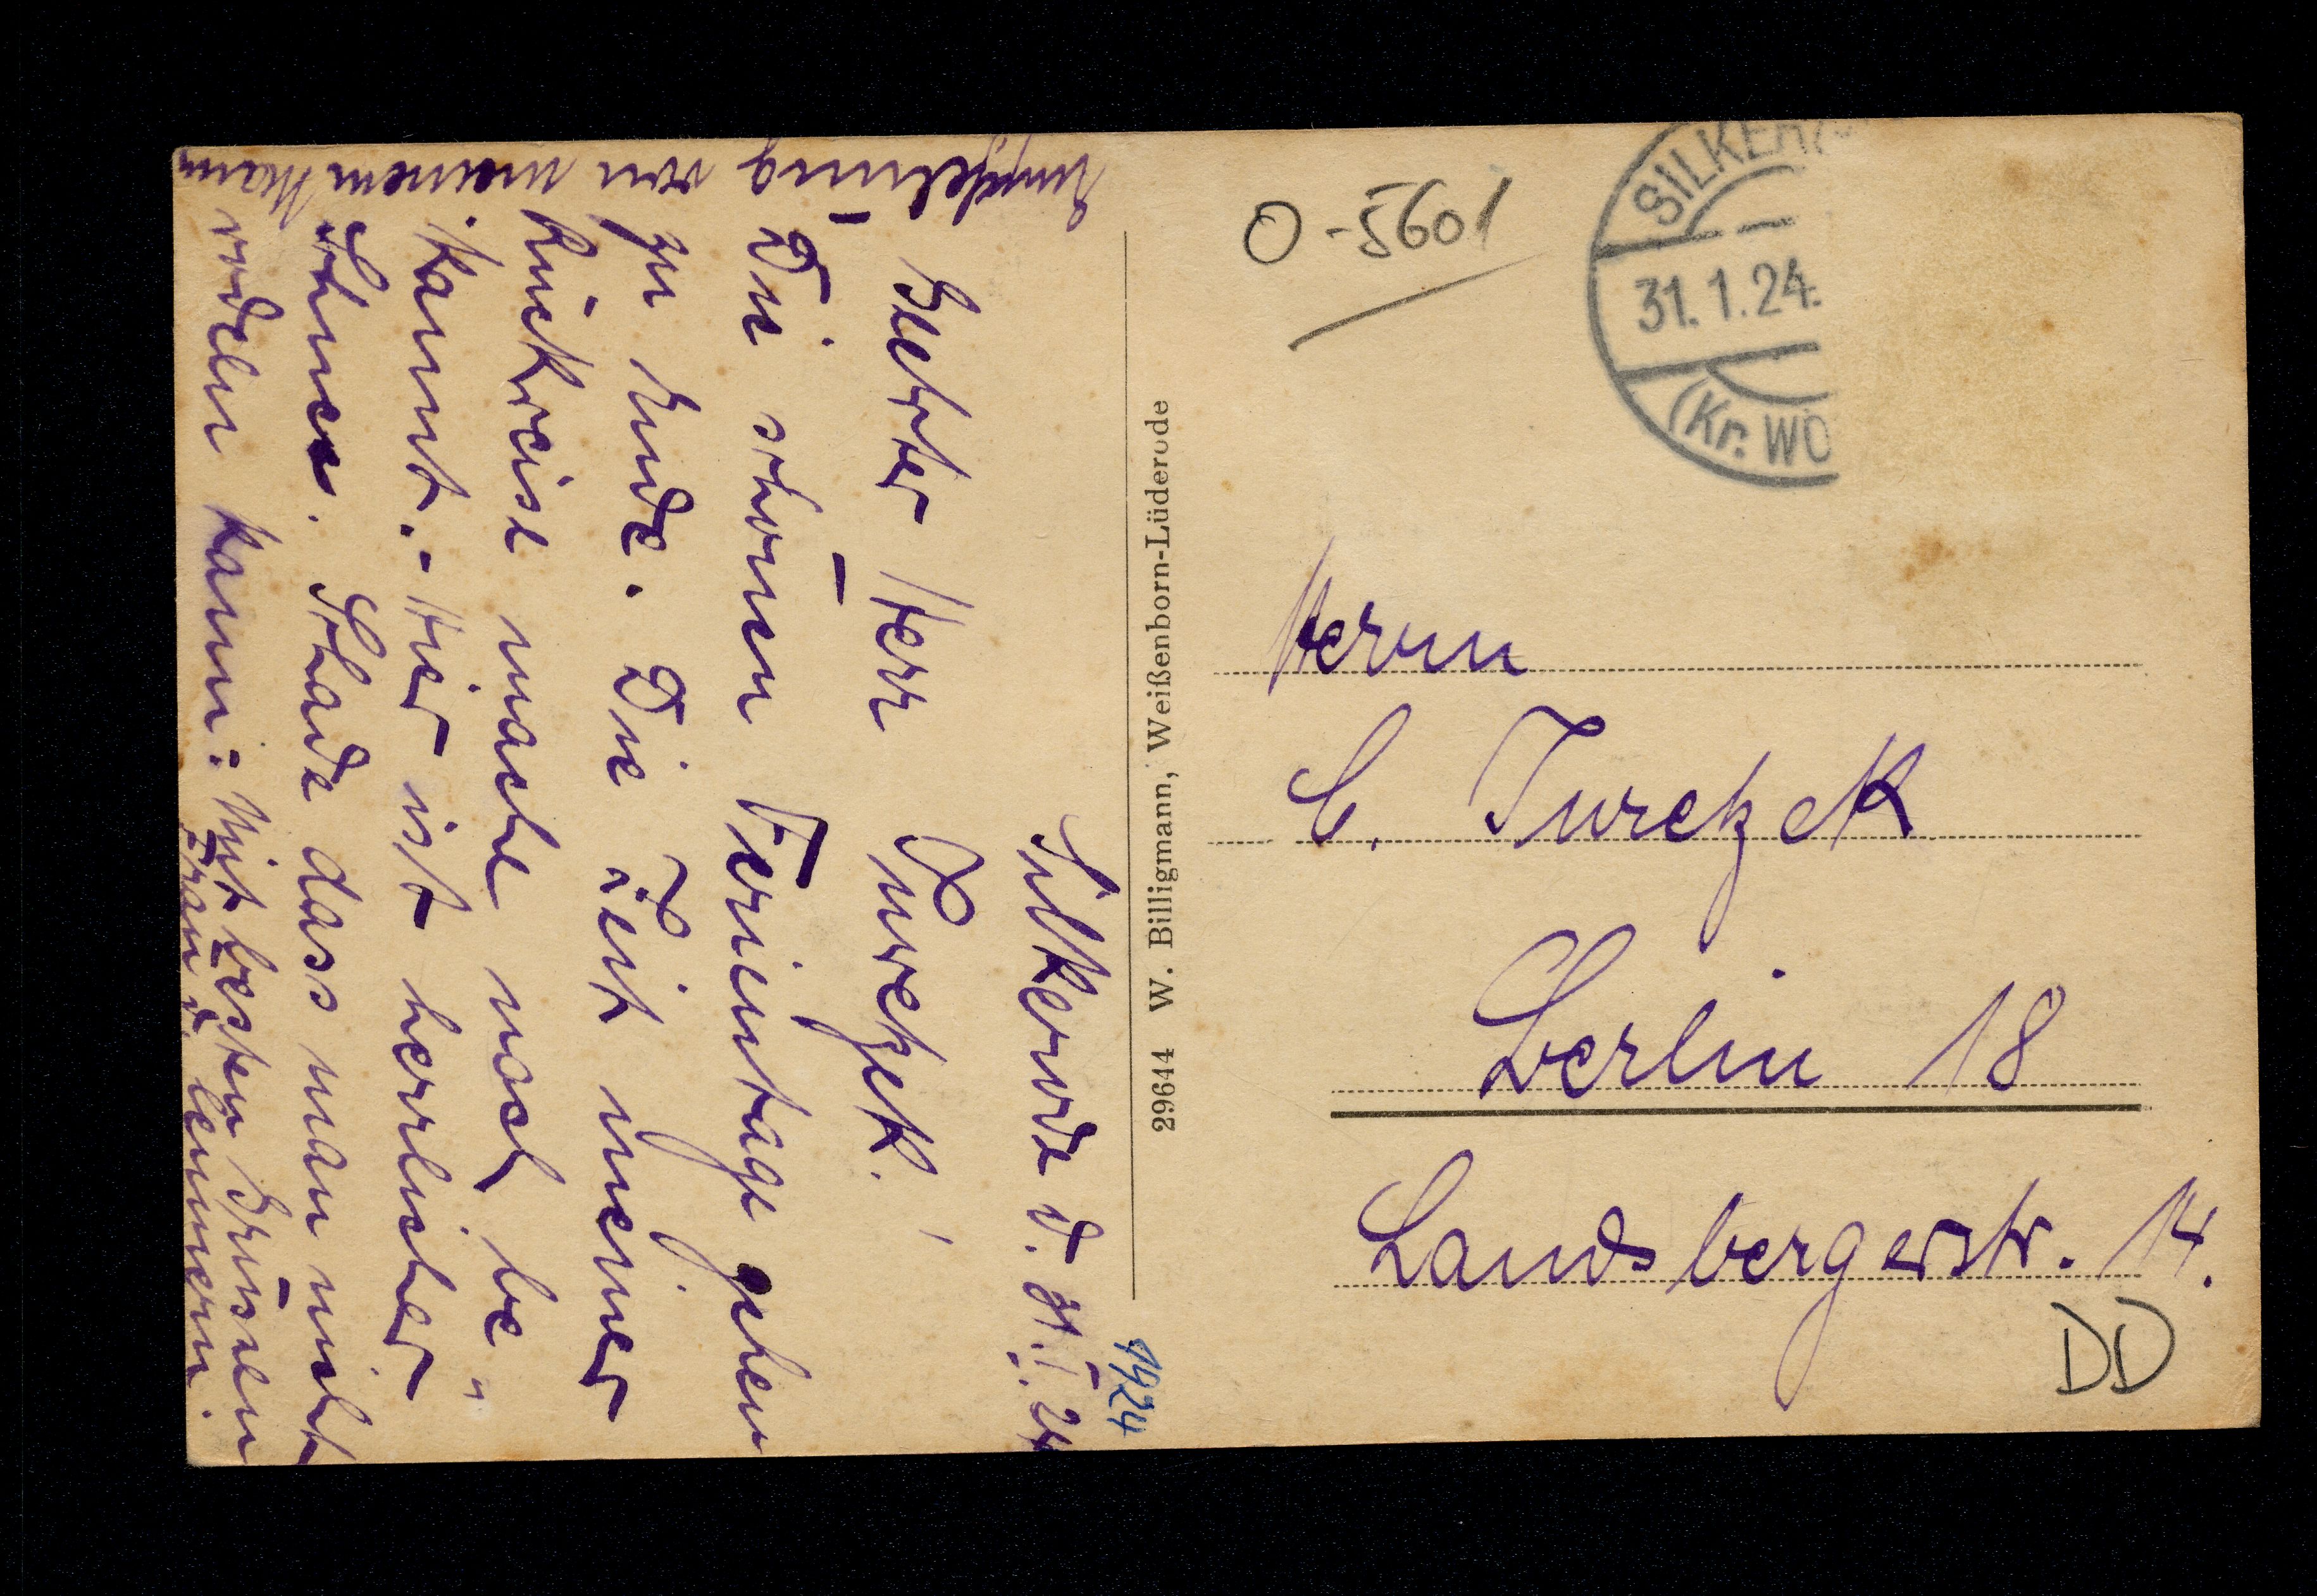 Silkerode d. 31.I.24
Geehrter Herr Tureczek!
Die schönen Ferientage gehen
zu Ende. Die Zeit meiner
Rückreise mache noch be"
kannt. - Hier ist herrlicher
Schnee. Schade dass man nicht
rodeln kann. Mit besten Grüssen
Frau
Empfehlung von meinem Mann
1924
29644 W. Billigmann, Weißenborn-Lüderode
O-5601
SILKERO
31.1.24.
(Kr. WO
Herrn
C. Tureczek
Berlin 18
Landsbergerstr. 14.
DD